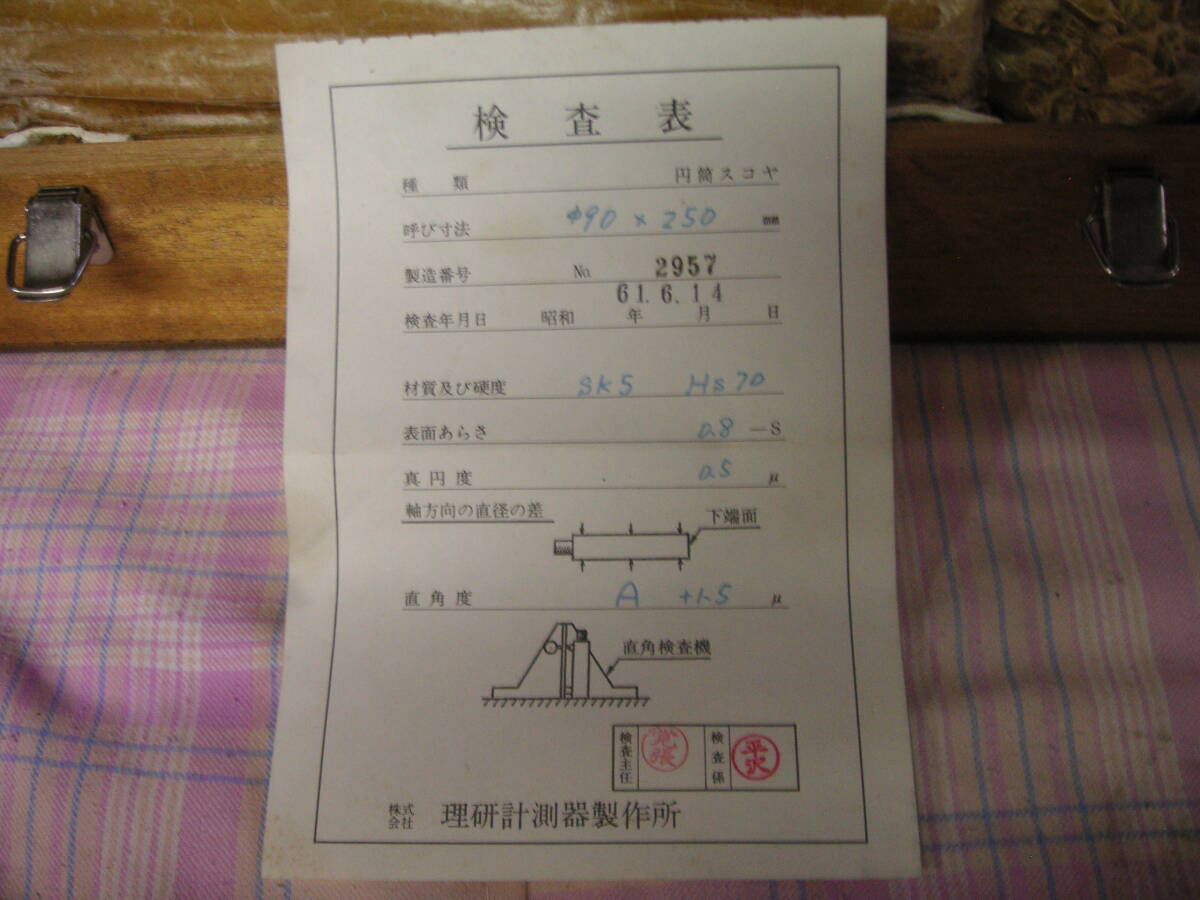 検査表
種類 円筒スコヤ
呼び寸法 φ90 × 250 mm
製造番号 No. 2957
61.6.14
検査年月日 昭和 年 月 日
材質及び硬度 SK5 Hs70
表面あらさ 0.8 —S
真円度 0.5 μ
軸方向の直径の差 下端面
直角度 A +1.5 μ
直角検査機
検査主任 検査係 平沢
株式会社 理研計測器製作所